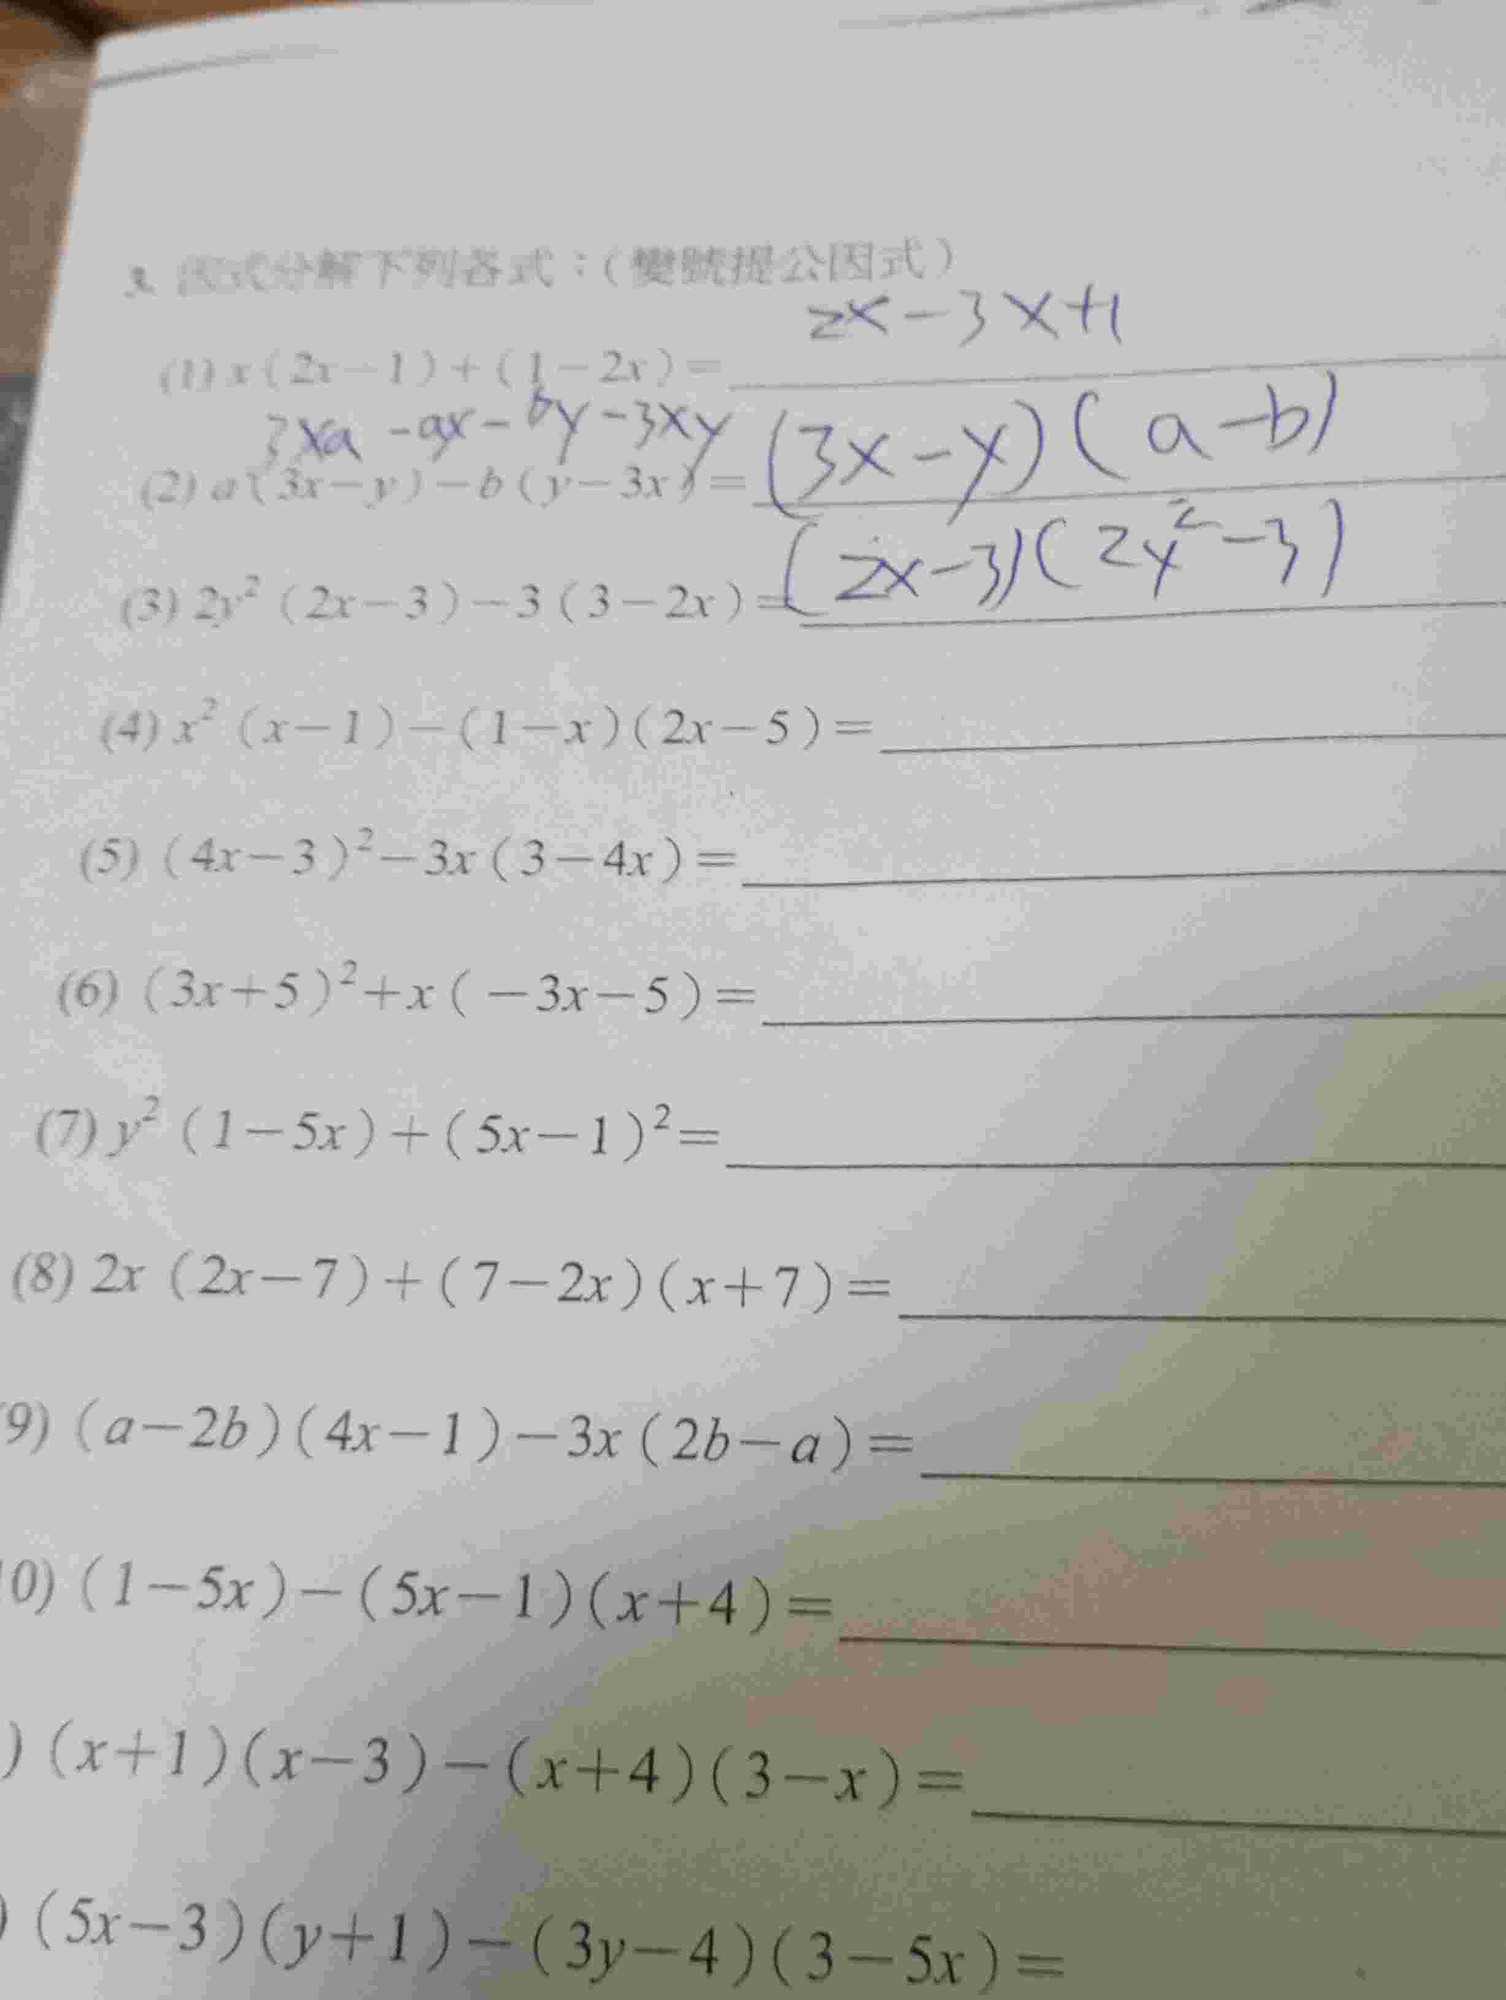 3. 因式分解下列各式：(變號提公因式)
2x-3x+1
(1) x(2x-1)+(1-2x)=
3xa-ax-by-3xy (3x-y)(a-b)
(2) a(3x-y)-b(y-3x)=
(2x-3)(2y²-3)
(3) 2y²(2x-3)-3(3-2x)=
(4) x²(x-1)-(1-x)(2x-5)=
(5) (4x-3)²-3x(3-4x)=
(6) (3x+5)²+x(-3x-5)=
(7) y²(1-5x)+(5x-1)²=
(8) 2x(2x-7)+(7-2x)(x+7)=
9) (a-2b)(4x-1)-3x(2b-a)=
0) (1-5x)-(5x-1)(x+4)=
) (x+1)(x-3)-(x+4)(3-x)=
) (5x-3)(y+1)-(3y-4)(3-5x)=